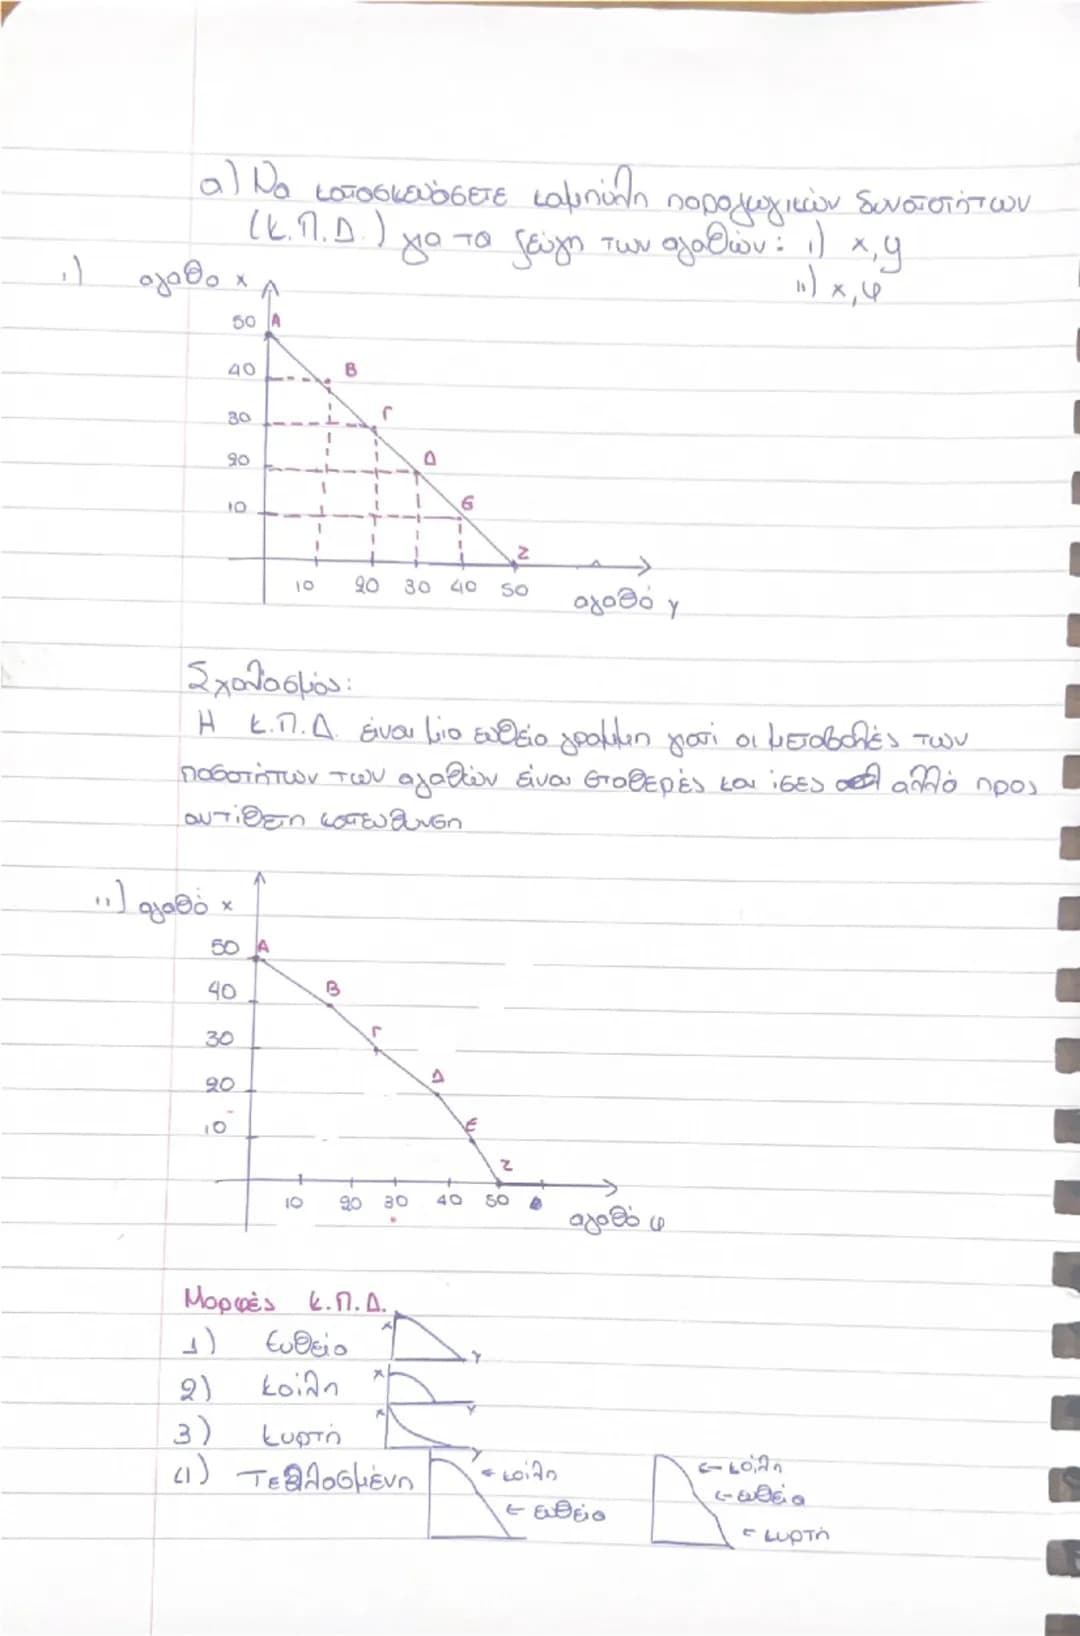 α) Να κατασκευάσετε καμπύλη παραγωγικών δυνατοτήτων
(Κ.Π.Δ.) για τα ζεύγη των αγαθών: i) x,y
ii) x,φ
i) αγαθο x
50 A
40 B
30 Γ
20 Δ
10 Ε
Z
10 20 30 40 50
αγαθό y
Σχολιασμός:
Η Κ.Π.Δ. είναι μια ευθεία γραμμή γιατί οι μεταβολές των
ποσοτήτων των αγαθών είναι σταθερές και ίσες αλλά προς
αντίθετη κατεύθυνση
ii) αγαθό x
50 A
40 B
30 Γ
20 Δ
10 Ε
Z
10 20 30 40 50
αγαθό φ
Μορφές Κ.Π.Δ.
1) Ευθεία x y
2) κοίλη x y
3) κυρτή x y
4) Τεθλασμένη ← κοίλη ← κοίλη
← ευθεία ← ευθεία
← κυρτή